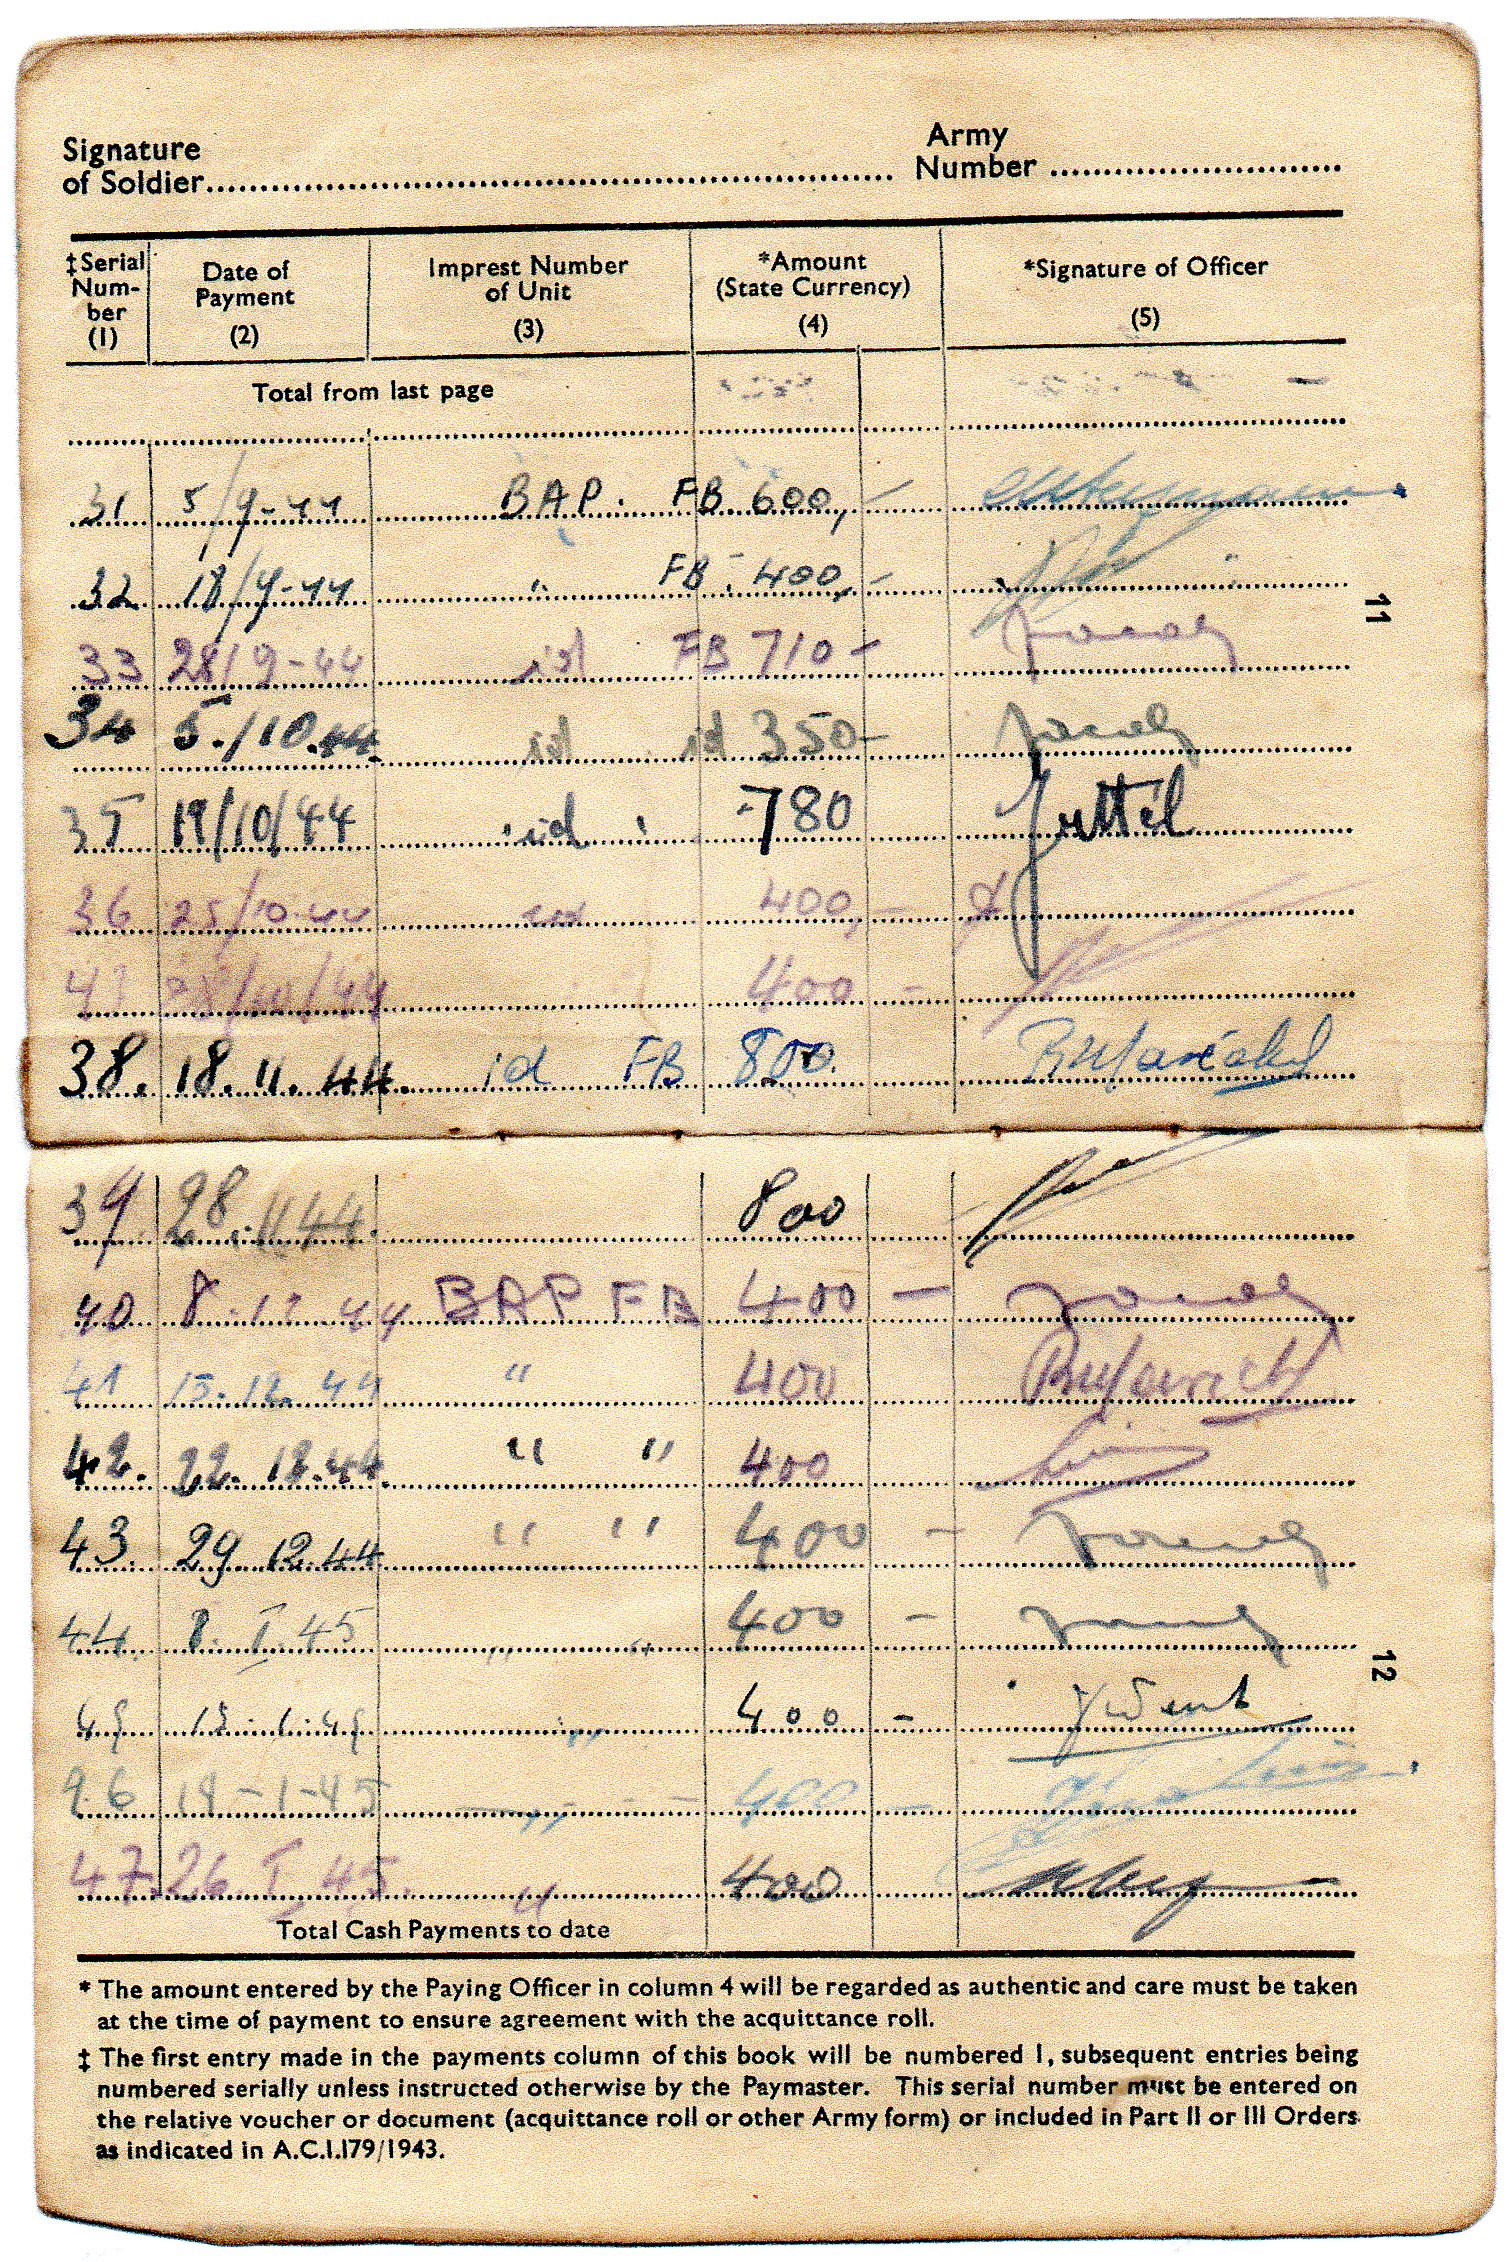 Signature
of Soldier........ Army
Number ........
‡Serial Num-ber (1) Date of Payment (2) Imprest Number of Unit (3) *Amount (State Currency) (4) *Signature of Officer (5)
Total from last page
31 5/9-44 BAP. FB 600,-
32 18/9-44 " FB. 400,-
33 28/9-44 id FB 710-
34 5./10.44 id id 350-
35 19/10/44 id 780
36 25/10.44 id 400,-
/10/44 400 -
38. 18.11.44. id FB 800.
11
39 28.11.44. 800
40 8.12.44 BAP FB 400 -
41 15.12.44 " 400
42. 22.12.44. " " 400
43. 29.12.44 " " 400 -
44. 8. I. 45 " " 400 -
45 12.1.45 " 400 -
46 19-1-45 " 400 -
47. 26. I 45. " 400
12
Total Cash Payments to date
* The amount entered by the Paying Officer in column 4 will be regarded as authentic and care must be taken
at the time of payment to ensure agreement with the acquittance roll.
‡ The first entry made in the payments column of this book will be numbered 1, subsequent entries being
numbered serially unless instructed otherwise by the Paymaster. This serial number must be entered on
the relative voucher or document (acquittance roll or other Army form) or included in Part II or III Orders
as indicated in A.C.I.179/1943.